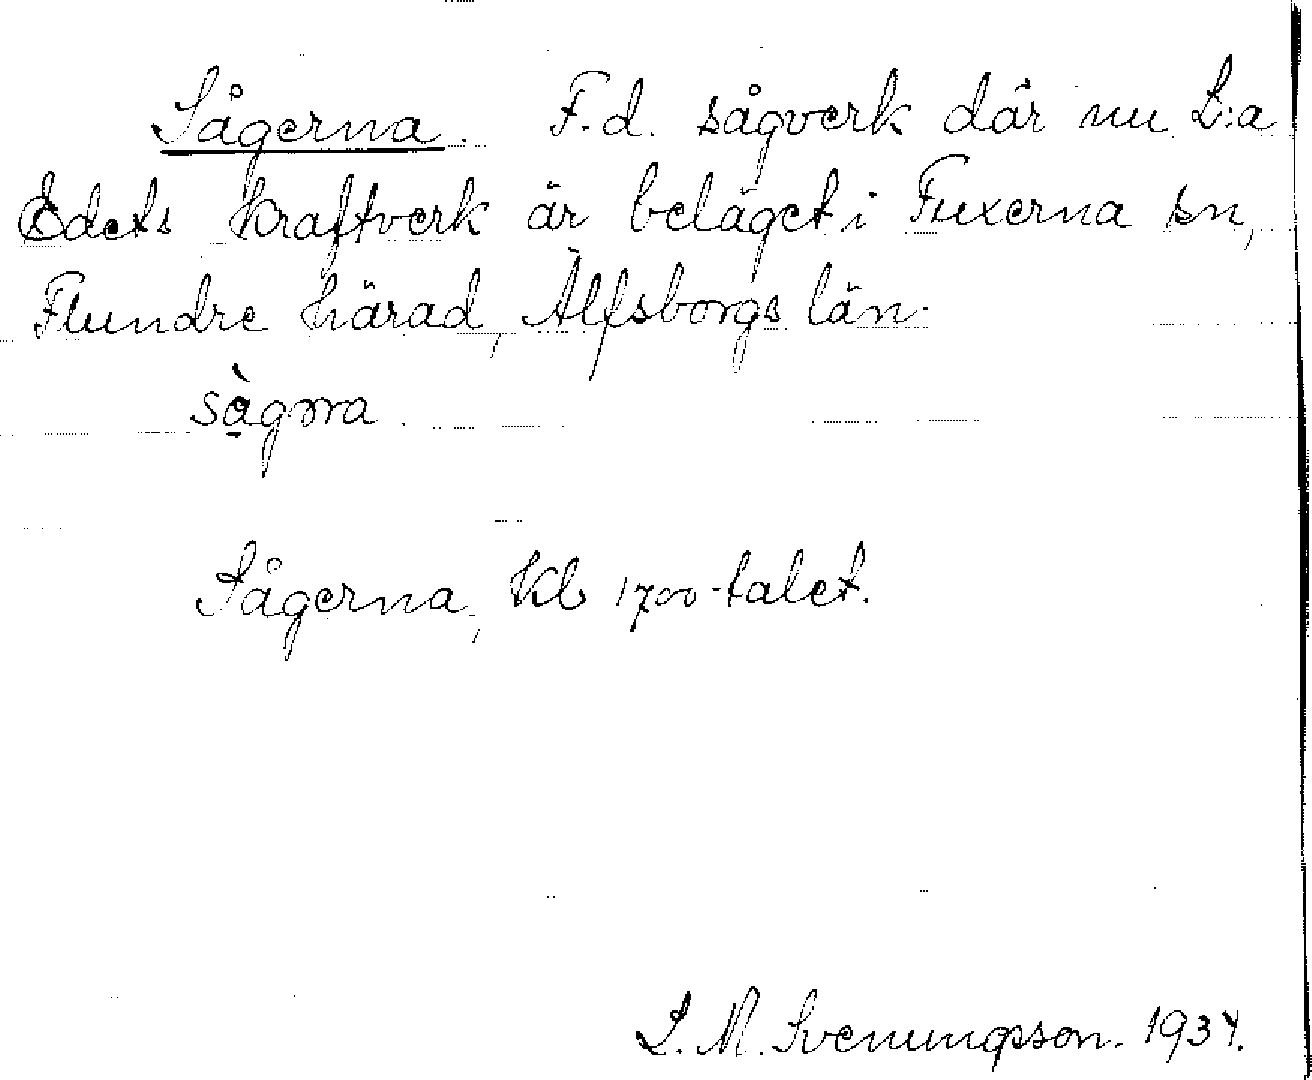 Sågerna. F.d. sågverk där nu L:a
Edets kraftverk är beläget i Fuxerna sn,
Flundre härad, Älfsborgs län.
sàgɷra.
Sågerna, Kb 1700-talet.
S. M. Svenungsson. 1934.